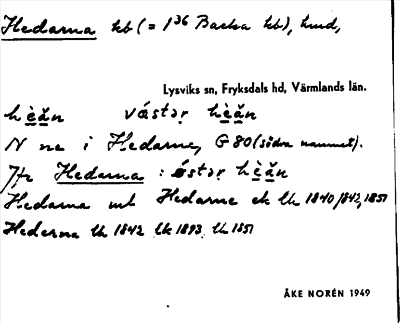 Hedarna hb (= 1³⁶ Backa hb), hmd,
Lysviks sn, Fryksdals hd, Värmlands län.
hèăn västər hèăn
N ne i Hedarne, G 80 (södra namnet).
Jfr Hedarna : östər hèăn
Hedarna mt Hedarne ek lk 1840 1842, 1851
Hederna lk 1842 lk 1893 lk 1851
ÅKE NORÉN 1949